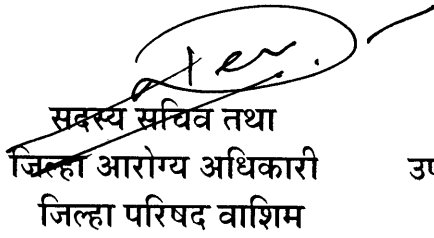 सदस्य सचिव तथा
जिल्हा आरोग्य अधिकारी
जिल्हा परिषद वाशिम